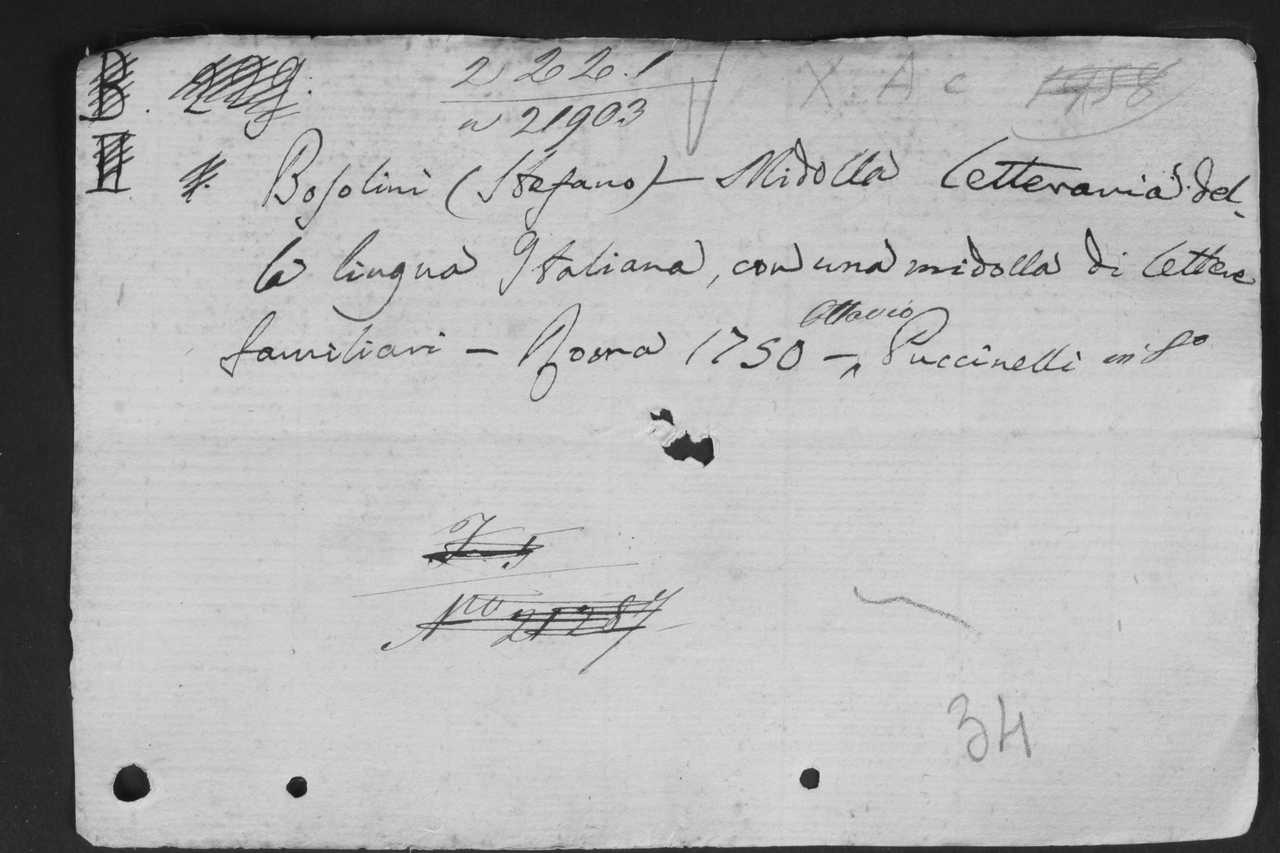 B.
2 22.1
n 21903
X. A c 1958
II
Bosolini (Stefano) — Midolla Letteraria del-
la lingua Italiana, con una midolla di lettere
familiari — Roma 1750 — Ottavio Puccinelli in 8º
Nº 21287
34